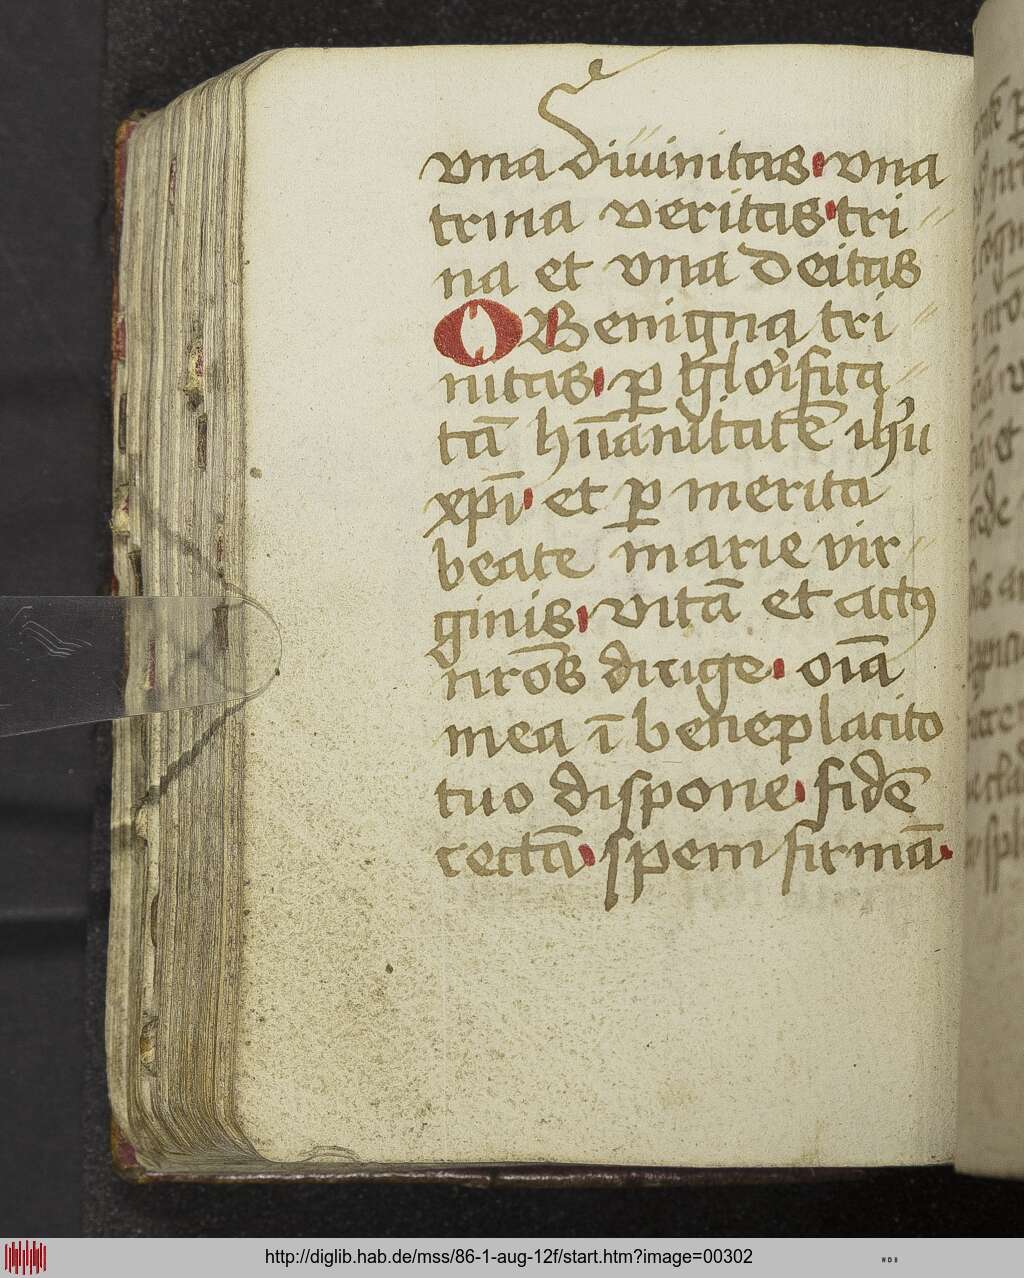 vna diuinitas vna
trina veritas tri
na et vna deitas
O Benigna tri
nitas p gl'orifica
tā hūanitatē ihu
xpī et p merita
beate marie vir
ginis vitā et actꝯ
nrōs dirige oīa
mea ī beneplacito
tuo dispone fidē
rectā spem firmā
http://diglib.hab.de/mss/86-1-aug-12f/start.htm?image=00302